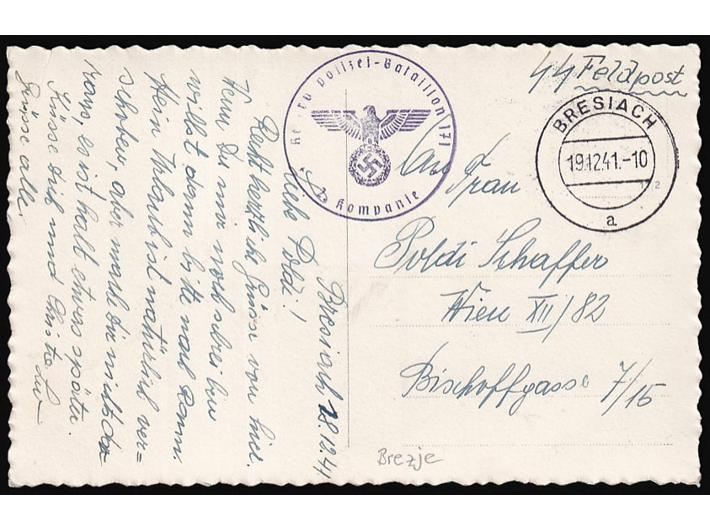 Bresiach 18.12.41
Liebe Poldi!
Recht herzliche Grüsse von hier.
Wenn Du mir noch schreiben
willst dann bitte nach Rann.
Mein Urlaub ist natürlich ver=
schoben, aber mache Dir nichts da
raus, es ist halt etwas später.
Küsse Dich und Christa
Grüsse alle.
Reserve Polizei-Bataillon 171
Kompanie
Feldpost
BRESIACH
19.12.41.-10
a
An Frau
Poldi Schaffer
Wien XII/82
Bischoffgasse 7/15
Brezje